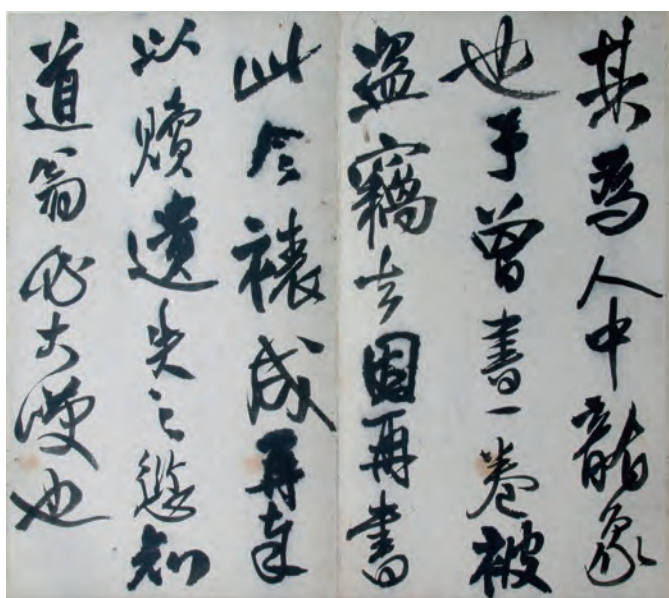 其為人中龍象
也予曾書一卷被
盜竊去因再書
此今裱成再奉
以贖遺失之愆知
道翁也